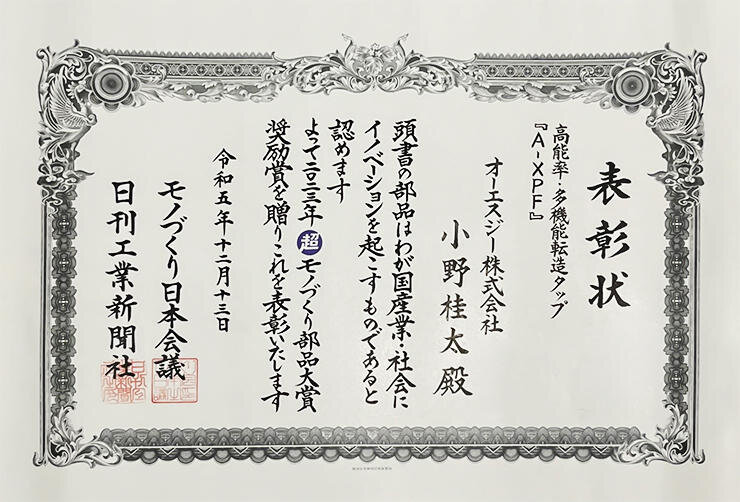 表彰状
高能率・多機能転造タップ
『A-XPF』
オーエスジー株式会社
小野桂太殿
頭書の部品はわが国産業・社会に
イノベーションを起こすものであると
認めます
よって二〇二三年超モノづくり部品大賞
奨励賞を贈りこれを表彰いたします
令和五年十二月十三日
モノづくり日本会議
日刊工業新聞社